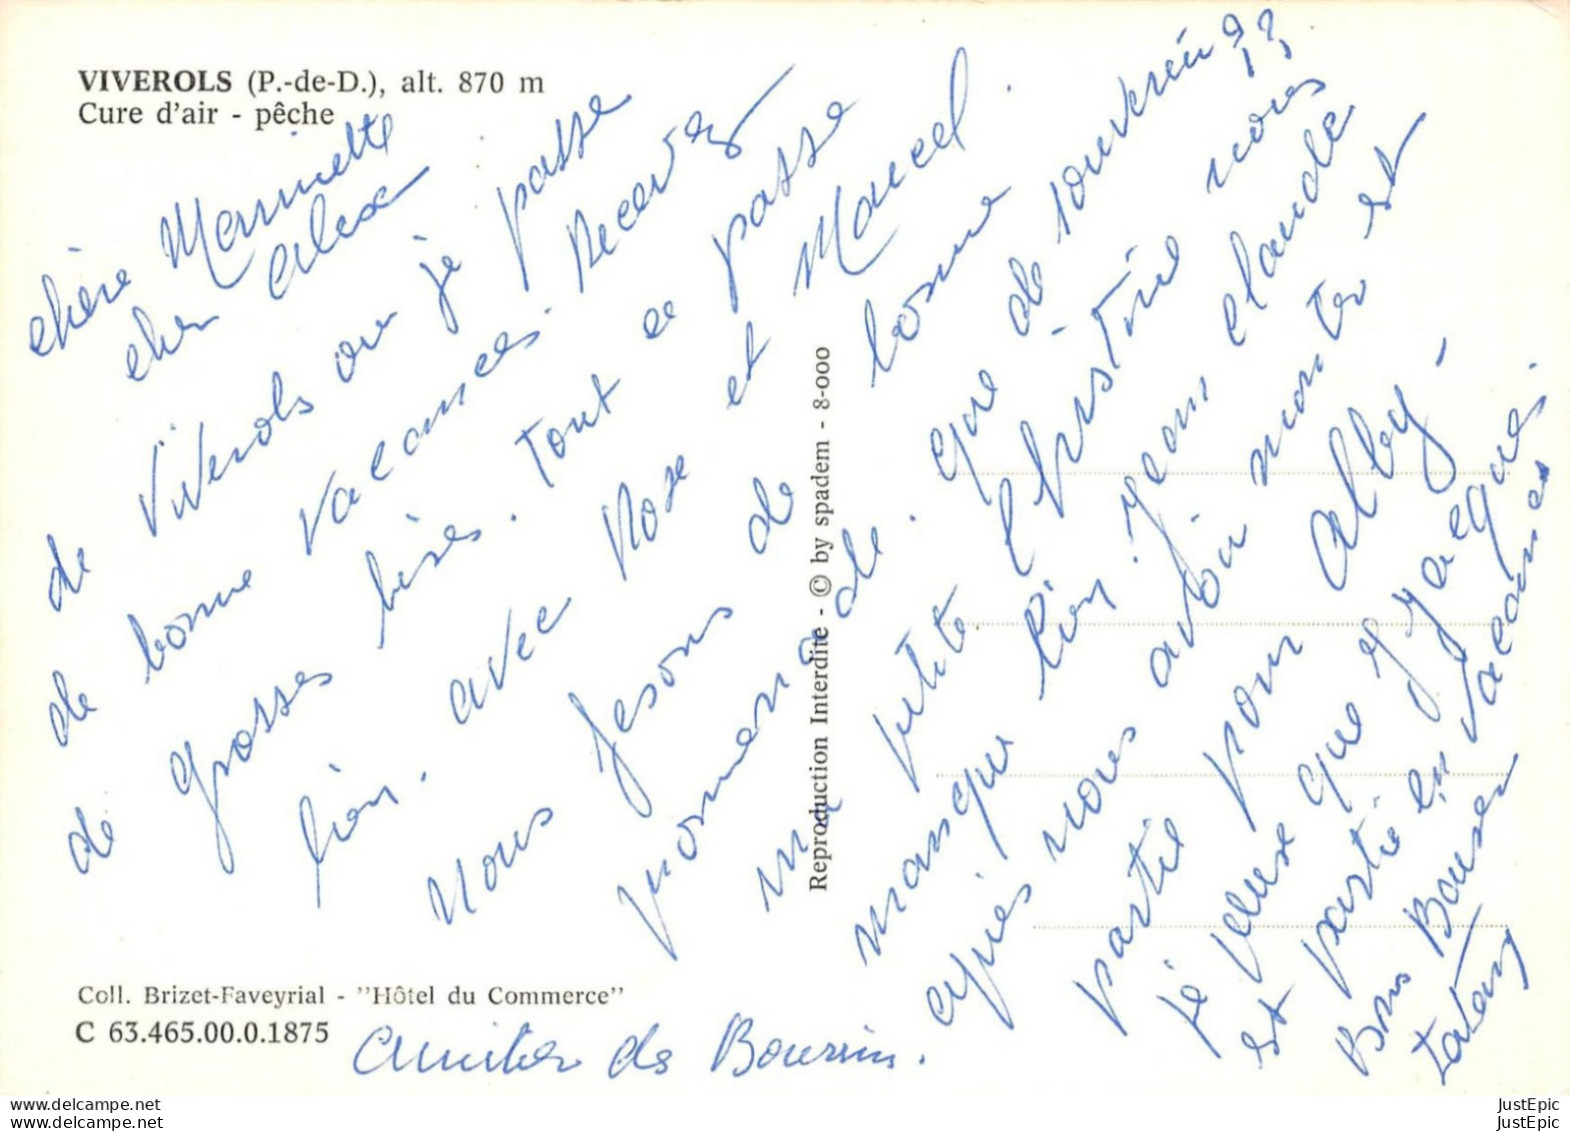 VIVEROLS (P.-de-D.), alt. 870 m
Cure d'air - pêche
chère Marinette
cher Alex
de Viverols ou je passe
de bonne vacances. Recevez
de grosses bises. Tout ce passe
bien. avec Rose et Marcel.
nous fesons de bonne
promenade. que de souvenir ??
ma petite Christine nous
manque bien. Jean claude
après nous avoir monter est
partie pour Alby -
je pense que Jacques
est partie en vacances
Bons Baiser
tatany
Amitier de Boursin.
Reproduction Interdite - © by spadem - 8-000
Coll. Brizet-Faveyrial - "Hôtel du Commerce"
C 63.465.00.0.1875
www.delcampe.net
www.delcampe.net
JustEpic
JustEpic